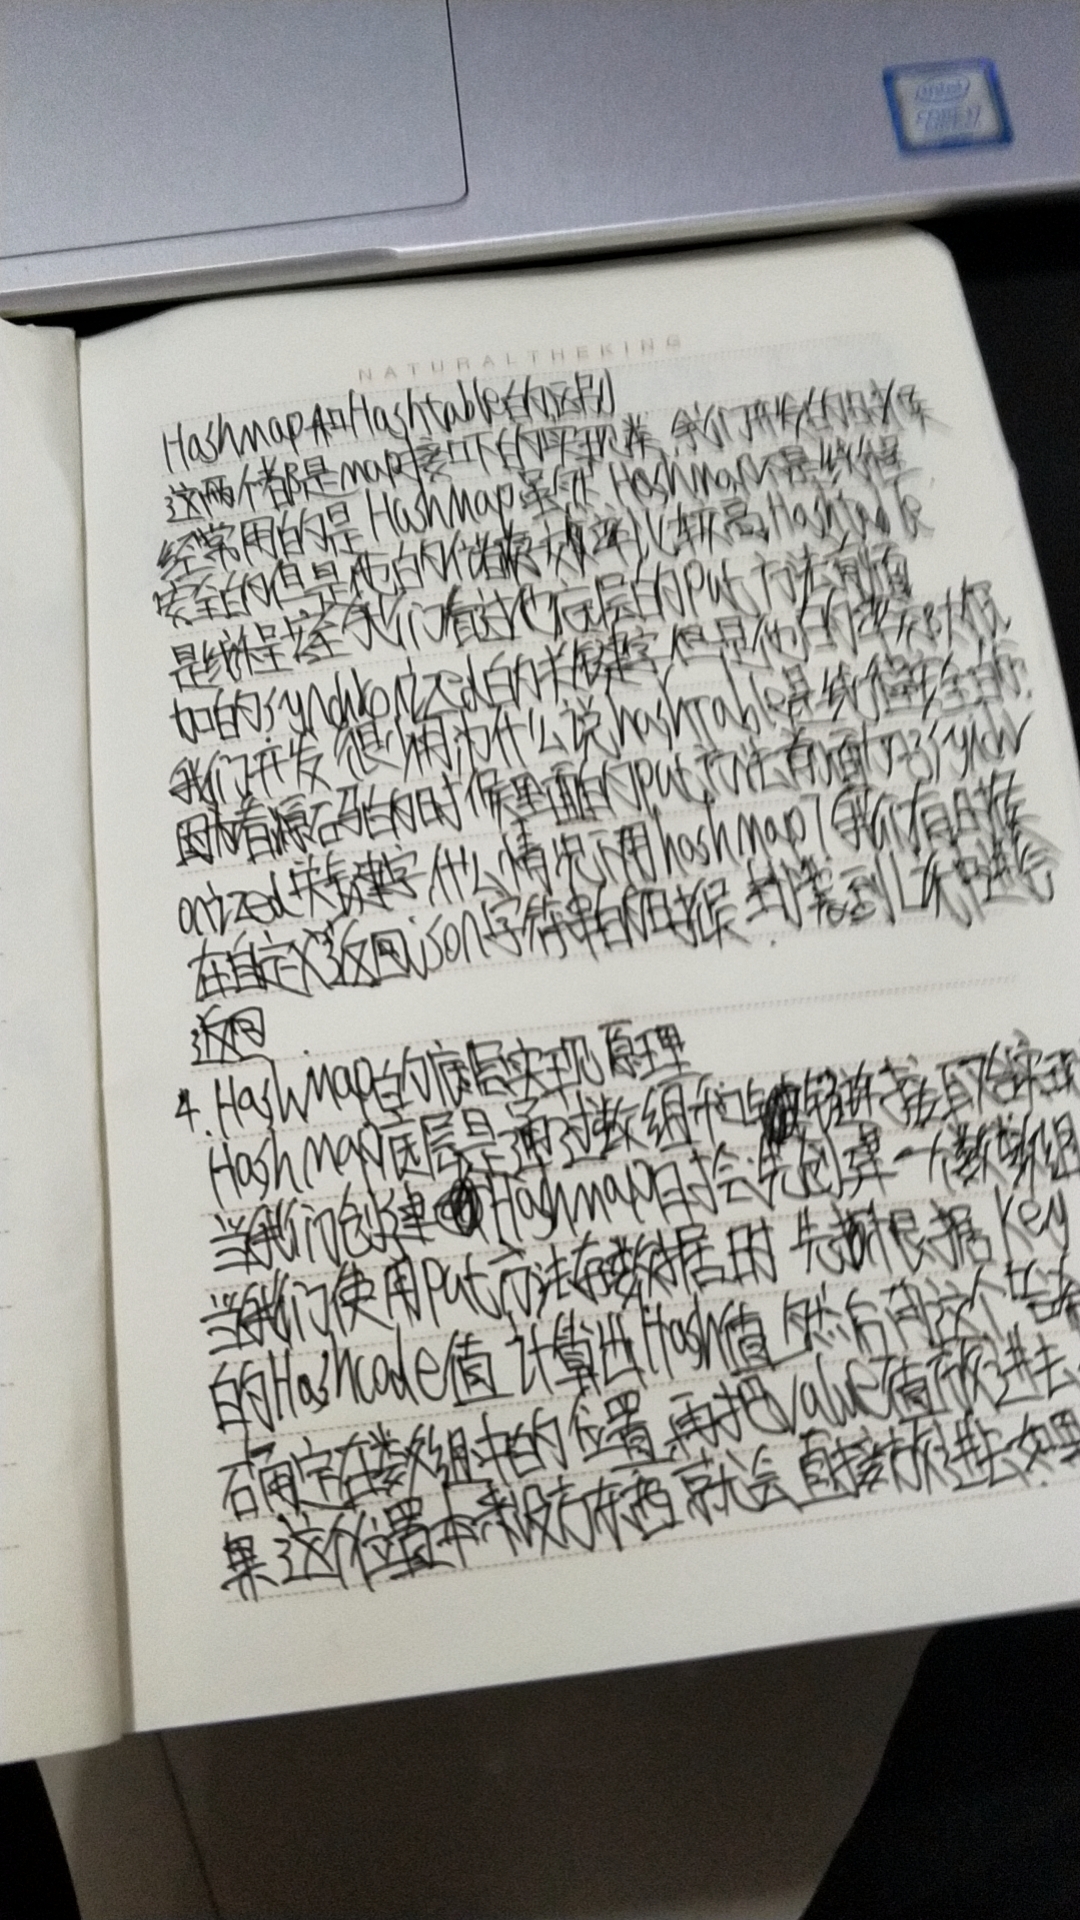 NATURALTHEKING
Hashmap和Hashtable的区别
这两个都是map接口下的实现类,我们开发的时候
经常用的是HashMap虽然HashMap不是线程
安全的但是他的效率比较高Hashtable
是线程安全我们看过他底层的Put方法有
加的synchronized的关键字但是他的
我们开发很少用为什么说hashTable是线程安全的.
因为看源码的时候里面的put方法有synchr
onized关键字什么情况下用hashmap?我们有时候
在自定义返回json字符串的时候封装到
返回.
4.HashMap的底层实现原理
HashMap底层是通过数组和链表实现
当我们创建Hashmap时会先创建一个数组
当我们使用Put方法存数据时先根据Key
的Hashcode值计算出Hash值然后用这个
确定在数组中的位置再把Value值放进去.
果这个位置本来没有东西就会直接放进去如果